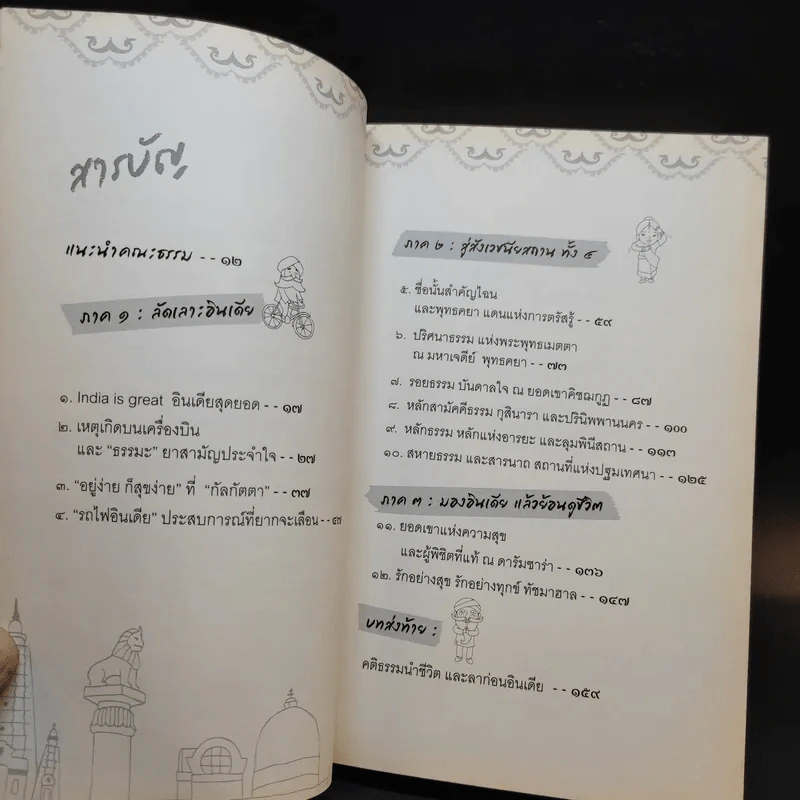 สารบัญ
แนะนำคณะธรรม -- ๑๒
ภาค ๑ : ลัดเลาะอินเดีย
๑. India is great อินเดียสุดยอด -- ๑๗
๒. เหตุเกิดบนเครื่องบิน
และ “ธรรมะ” ยาสามัญประจำใจ -- ๒๗
๓. “อยู่ง่าย ก็สุขง่าย” ที่ “กัลกัตตา” -- ๓๗
๔. “รถไฟอินเดีย” ประสบการณ์ที่ยากจะเลือน -- ๔๗
ภาค ๒ : สู่สังเวชนียสถาน ทั้ง ๔
๕. ชื่อนั้นสำคัญไฉน
และพุทธคยา แดนแห่งการตรัสรู้ -- ๕๙
๖. ปริศนาธรรม แห่งพระพุทธเมตตา
ณ มหาเจดีย์ พุทธคยา -- ๗๓
๗. รอยธรรม บันดาลใจ ณ ยอดเขาคิชฌกูฏ -- ๘๗
๘. หลักสามัคคีธรรม กุสินารา และปรินิพพานนคร -- ๑๐๐
๙. หลักธรรม หลักแห่งอารยะ และลุมพินีสถาน -- ๑๑๓
๑๐. สหายธรรม และสารนาถ สถานที่แห่งปฐมเทศนา -- ๑๒๕
ภาค ๓ : มองอินเดีย แล้วย้อนดูชีวิต
๑๑. ยอดเขาแห่งความสุข
และผู้พิชิตที่แท้ ณ ดารัมซาร่า -- ๑๓๖
๑๒. รักอย่างสุข รักอย่างทุกข์ ทัชมาฮาล -- ๑๔๗
บทส่งท้าย :
คติธรรมนำชีวิต และลาก่อนอินเดีย -- ๑๕๙